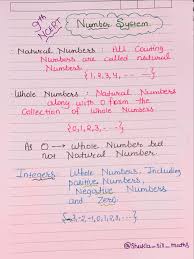 9th NCERT
Number System
Natural Numbers: All Counting
Numbers are called natural
Numbers.
{1, 2, 3, 4, ---- ---}
Whole Numbers: Natural Numbers
along with 0 form the
Collection of Whole Numbers
{0,1,2,3, -----}
As 0 → Whole Number but
not Natural Number
Integers: Whole Numbers, Including
positive Numbers,
Negative Numbers
and Zero.
{-3,-2,-1,0,1,2, --- }